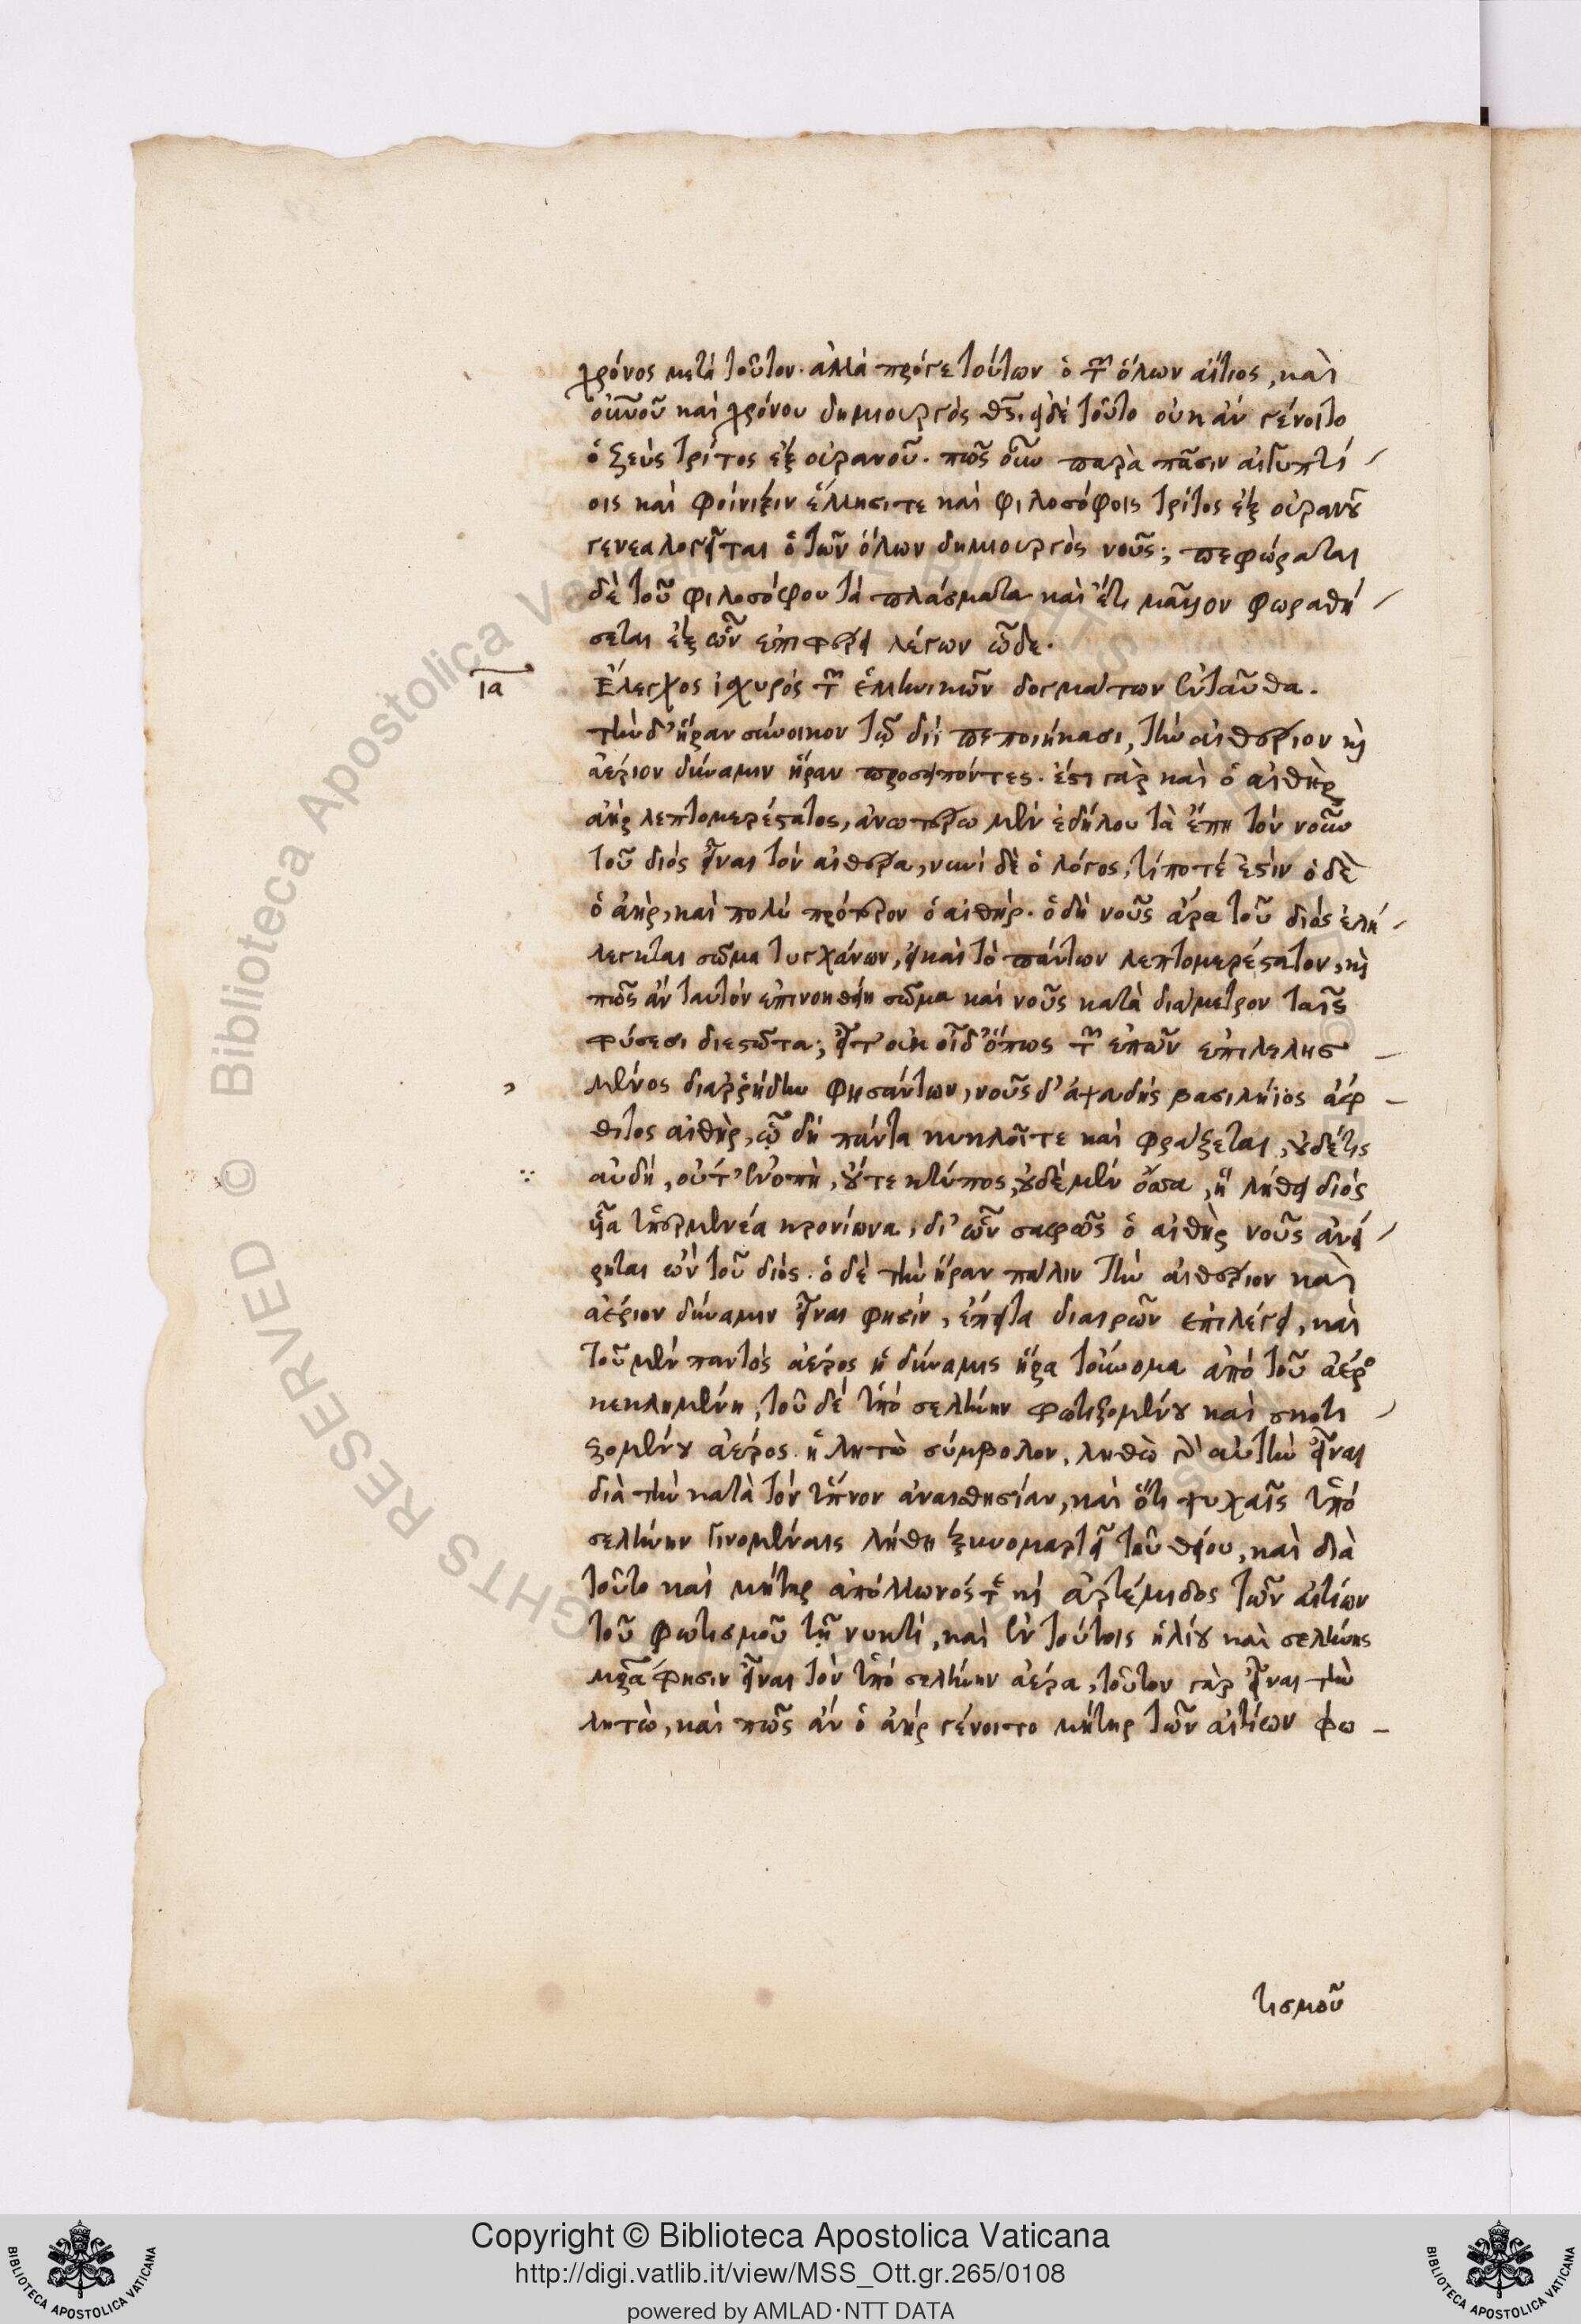 χρόνος μετὰ τοῦτον. ἀλλὰ πρόγε τούτων ὁ τῶν ὅλων αἴτιος, καὶ
οὐνοῦ καὶ χρόνου δημιουργὸς θσ. εἰ δὲ τοῦτο οὐκ ἂν γένοιτο
ὁ ζεὺς τρίτος ἐξ οὐρανοῦ. πῶς οὖν παρὰ πᾶσιν αἰγυπτί
οις καὶ φοίνιξιν ἕλλησι τε καὶ φιλοσόφοις τρίτος ἐξ οὐρανοῦ
γενεαλογεῖται ὁ τῶν ὅλων δημιουργὸς νοῦς; πεφώραται
δὲ τοῦ φιλοσόφου τὰ πλάσματα καὶ ἔτι μᾶλλον φωραθή
σεται ἐξ ὧν ἐπιφέρει λέγων ὧδε.
ια
Ἔλεγχος ἰσχυρός τῶν ἑλληνικῶν δογμάτων ἐνταῦθα.
τὴν δ' ἥραν σύνοικον τῷ διῒ πεποιήκασι, τὴν αἰθέριον καὶ
ἀέριον δύναμιν ἥραν προσειπόντες. ἔστι γὰρ καὶ ὁ αἰθὴρ
ἀὴρ λεπτομερέστατος, ἀνωτέρω μὲν ἐδήλου τὰ ἔπη τὸν νοῦν
τοῦ διός εἶναι τὸν αἰθέρα, νυνὶ δὲ ὁ λόγος, τί ποτέ ἐστὶν ὁ δὲ
ὁ ἀὴρ, καὶ πολὺ πρότερον ὁ αἰθήρ. ὁ δὴ νοῦς ἄρα τοῦ διός ἐλή
λεγκται σῶμα τυγχάνων, εἰ καὶ τὸ πάντων λεπτομερέστατον, καὶ
πῶς ἂν ταυτόν ἐπινοηθείη σῶμα καὶ νοῦς κατὰ διάμετρον ταῖς
φύσεσι διεστῶτα; εἶτ' οὐκ οἶδ' ὅπως τῶν ἐπῶν ἐπιλελησ
μένος διαρρήδην φησάντων, νοῦς δ' ἀψευδὴς βασιλήϊος ἄφ
θιτος αἰθὴρ, ᾧ δὴ πάντα κυκλοῖ τε καὶ φράζεται, οὐδέ τις
αὐδή, οὔτ' ἐνοπὴ, οὔτε κτύπος, οὐδὲ μὲν ὄσσα, ἣ λήθει διός
ὦτα ὑπερμενέα κρονίωνα, δι' ὧν σαφῶς ὁ αἰθὴρ νοῦς ἀνεί
ρηται ὢν τοῦ διός. ὁ δὲ τὴν ἥραν πάλιν τὴν αἰθέριον καὶ
ἀέριον δύναμιν εἶναι φησίν, ἔπειτα διαιρῶν ἐπιλέγει, καὶ
τοῦ μὲν παντὸς ἀέρος ἡ δύναμις ἥρα τοὔνομα ἀπὸ τοῦ ἀέρος
κεκλημένη, τοῦ δὲ ὑπὸ σελήνην φωτιζομένου καὶ σκοτι
ζομένου ἀέρος ἡ λητὼ σύμβολον, ληθὼ γὰρ αὐτὴν εἶναι
διὰ τὴν κατὰ τὸν ὕπνον ἀναισθησίαν, καὶ ὅτι ψυχαῖς ὑπὸ
σελήνην γινομέναις λήθη ξυνομαρτεῖ τοῦ θείου, καὶ διὰ
τοῦτο καὶ μήτηρ ἀπόλλωνός τε καὶ ἀρτέμιδος τῶν αἰτίων
τοῦ φωτισμοῦ τῇ νυκτὶ, καὶ ἐν τούτοις ἡλίου καὶ σελήνης
μρα φησιν εἶναι τὸν ὑπὸ σελήνην ἀέρα, τοῦτον γὰρ εἶναι τὴν
λητὼ, καὶ πῶς ἂν ὁ ἀὴρ γένοιτο μήτηρ τῶν αἰτίων φω
τισμοῦ
Copyright © Biblioteca Apostolica Vaticana
http://digi.vatlib.it/view/MSS_Ott.gr.265/0108
powered by AMLAD·NTT DATA